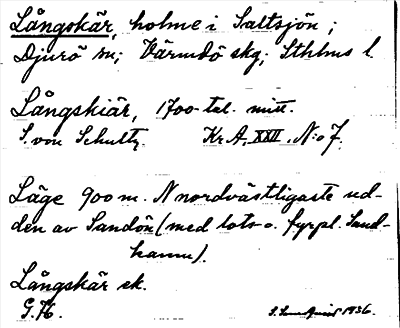 Långskär, holme i Saltsjön;
Djurö sn; Värmdö skg; Sthlms l.
Långskiär, 1700-tal. mitt.
S. von Schultz. Kr. A. XXII. N:o 7.
Läge 900 m. N nordvästligaste ud-
den av Sandön (med lots- o. fyrpl. Sand-
hamn).
Långskär sk.
G.K.
1936.